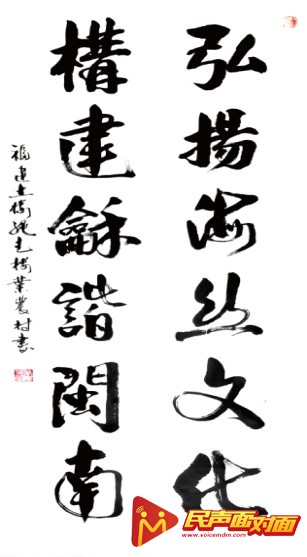 弘揚海丝文化
構建龢諧閩南
福建土樓 農村書
民声面对面
www.voicemdm.com